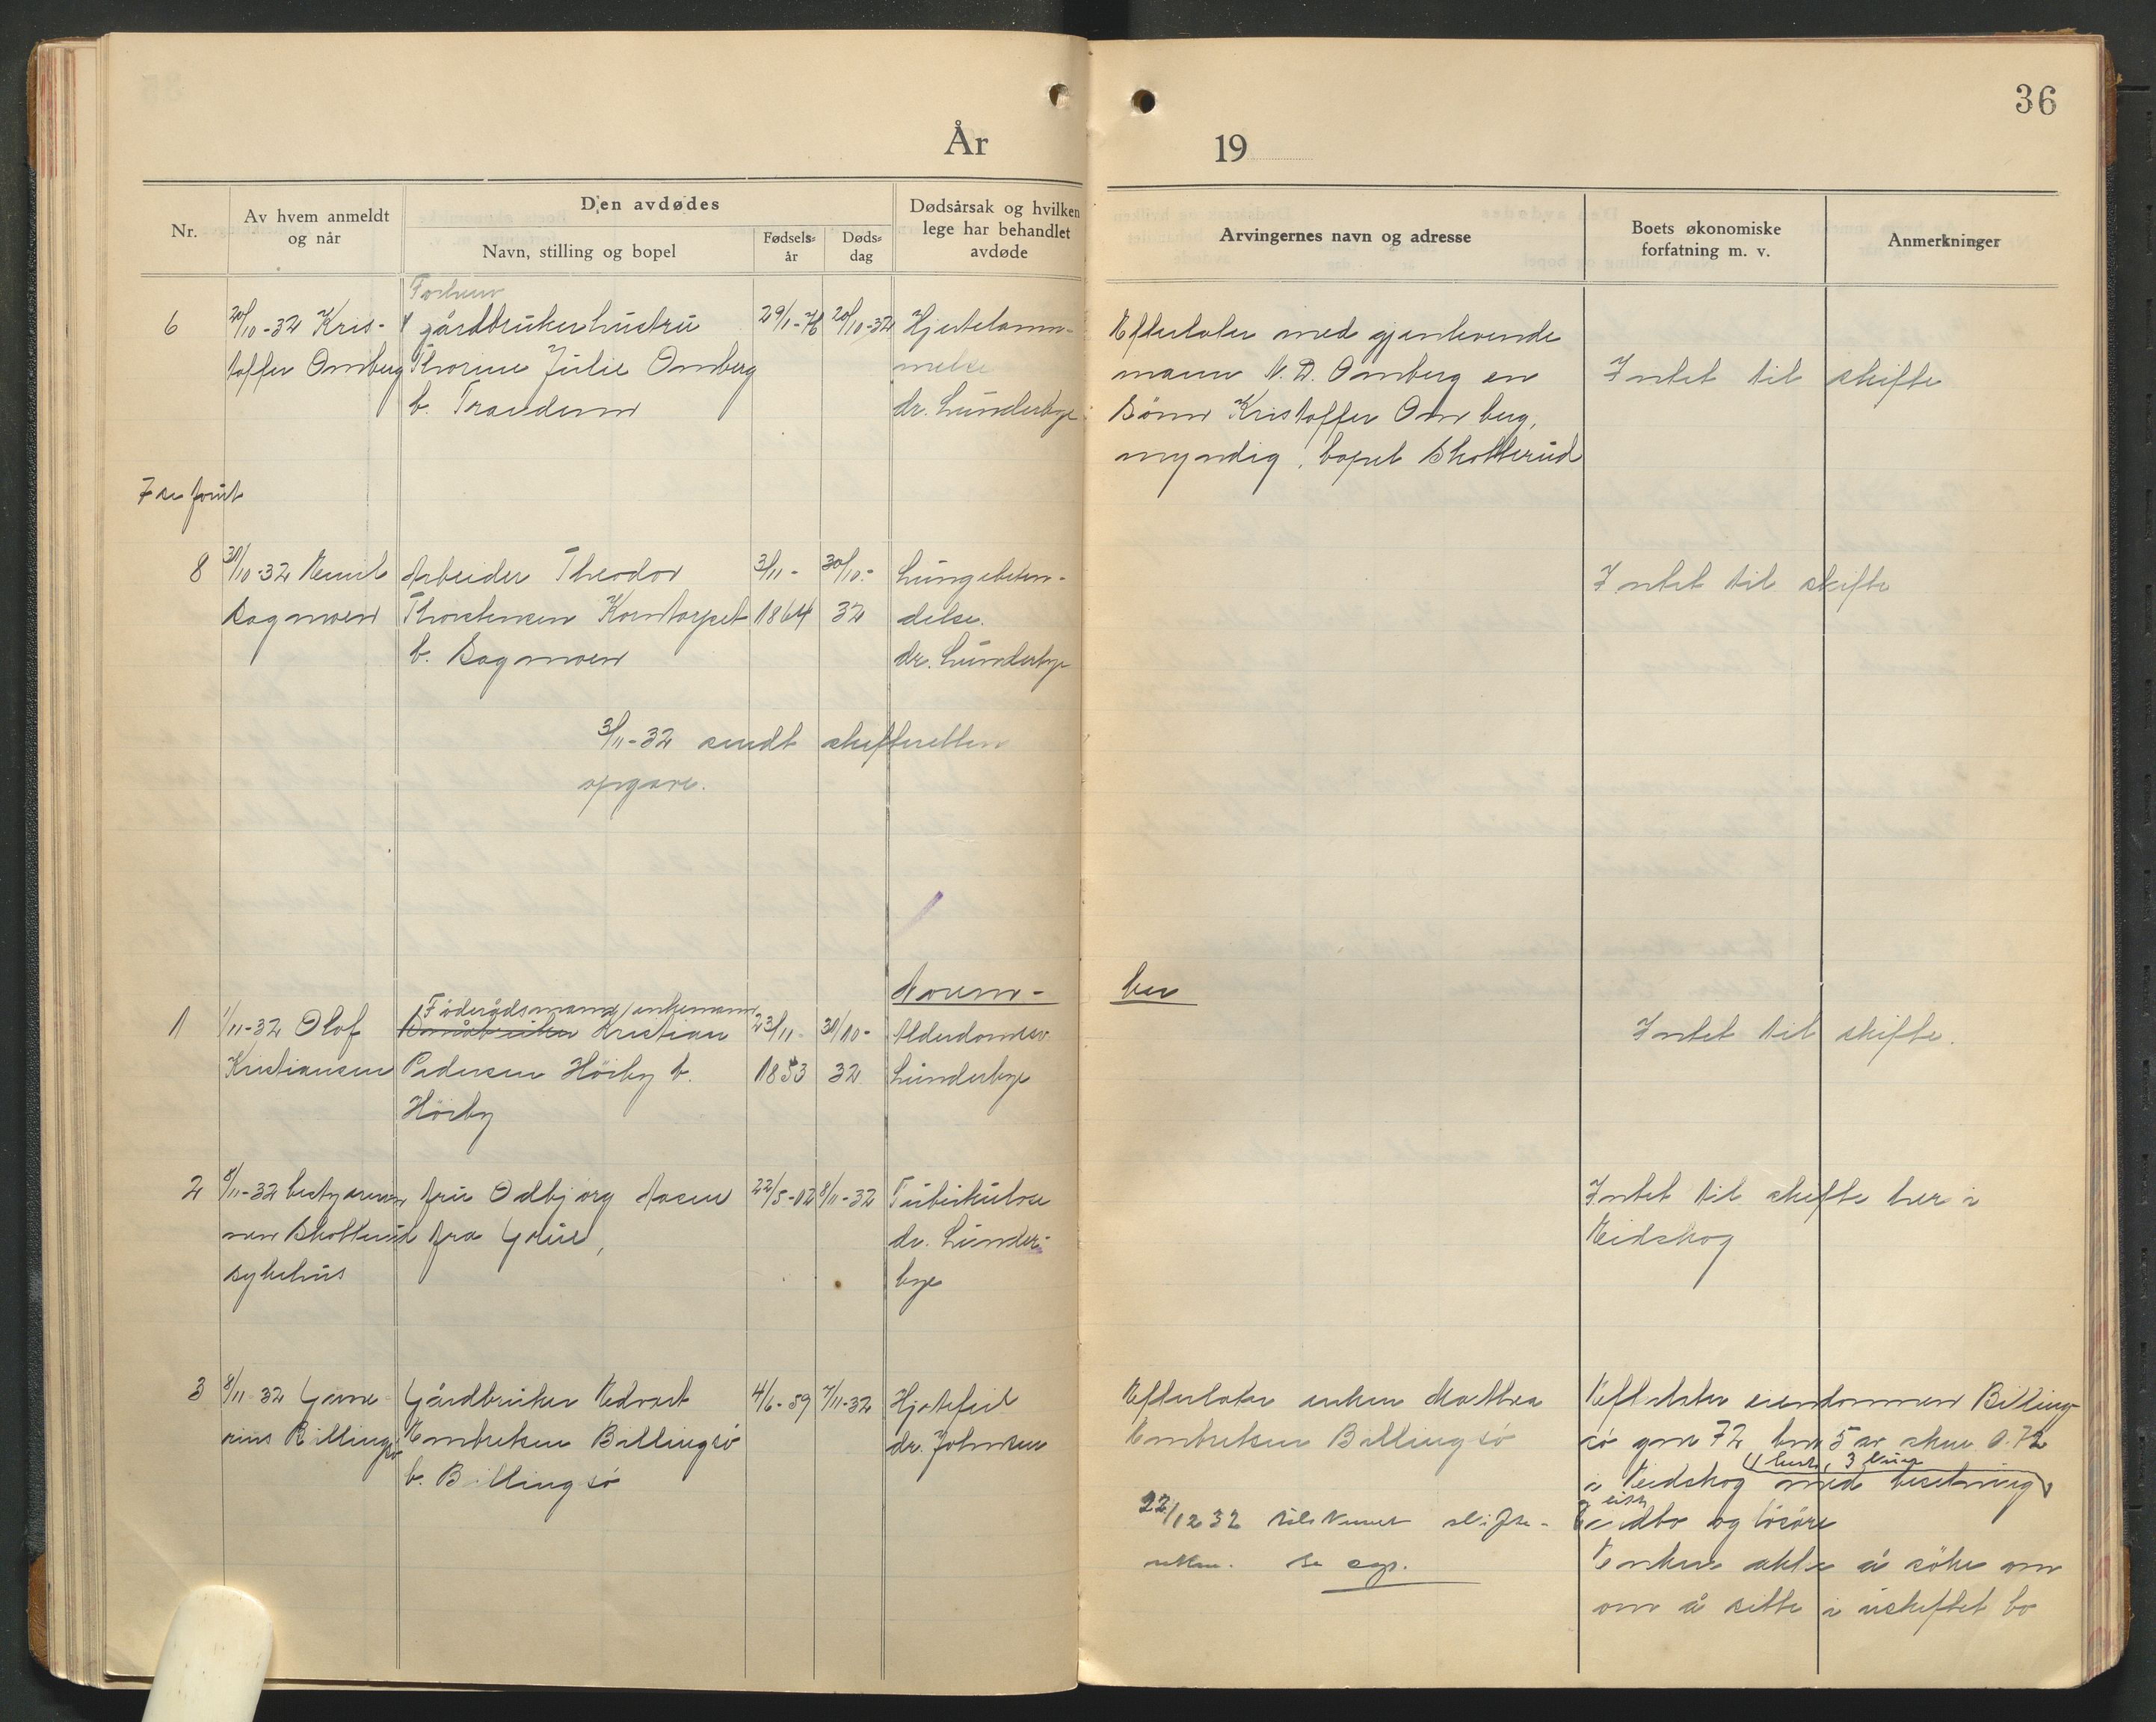 36
År 19
Nr.
Av hvem anmeldt
og når
Den avdødes
Navn, stilling og bopel
Fødsels-
år
Døds-
dag
Dødsårsak og hvilken
lege har behandlet
avdøde
Arvingernes navn og adresse
Boets økonomiske
forfatning m. v.
Anmerkninger
6
20/10-32 Kris-
toffer Omberg
Forhenv
gårdbrukerhustru
Thorine Julie Omberg
b. Trandem
29/1-76
20/10-32
Hjertelam-
melse
dr. Lunderbye
Efterlater med gjenlevende
mann N. D. Omberg en
Sönn Kristoffer Omberg,
myndig, bopel Skotterud
Intet til skifte
7 se forut
8
31/10-32
Sagmoen
Arbeider Theodor
Thorstensen Korntorpet
b. Sagmoen
3/11-
1864
30/10-
32
Lungebeten-
delse.
dr. Lunderbye
Intet til skifte
3/11-32 sendt skifteretten
opgave.
Novem-
ber
1
1/11-32 Olof
Kristiansen
Föderådsmann/enkemann
Kristian
Pedersen Höiby b.
Höiby
23/11-
1853
31/10-
32
Alderdomsv.
Lunderbye
Intet til skifte.
2
8/11-32 bestyrerin-
nen Skotterud
sykehus
fru Odbjørg Aasen
fra Grue,
22/5-02
8/11-32
Tuberkulose
dr. Lunder-
bye
Intet til skifte her i
Eidskog
3
8/11-32
Billingsö
Gårdbruker Edvart
Embretsen Billingsö
b. Billingsö
4/6-59
7/11-32
Hjertefeil
dr. Johnsen
Efterlater enken Mathea
Embretsen Billingsö
22/12 32 tilskrevet skifte-
retten. Se egs.
Efterlater eiendommen Billing-
sö gnr 72 bnr 5 av skyld 0.72
(1 hest, 3 kuer
i Eidskog med besetning
og lösöre
Enken akter å söke om
om å sitte i uskiftet bo